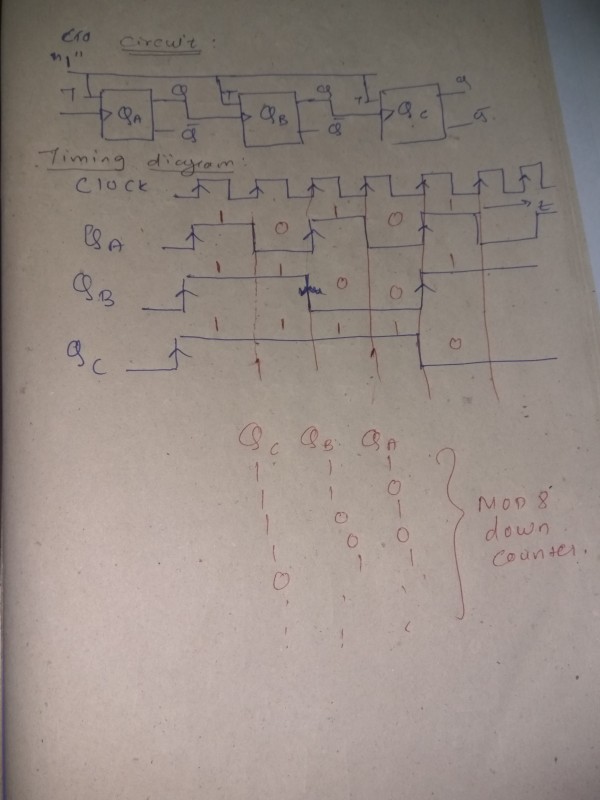 Circuit:
"1"
T Q T Q T Q
QA QB QC
Q̅ Q̅ Q̅
Timing diagram:
Clock
QA 1 0 1 0 1 t
QB 1 1 0 0 1
QC 1 1 1 1 0
QC QB QA
1 1 1
1 1 0
1 0 1
1 0 0
0 1 1
MOD 8
down
counter.